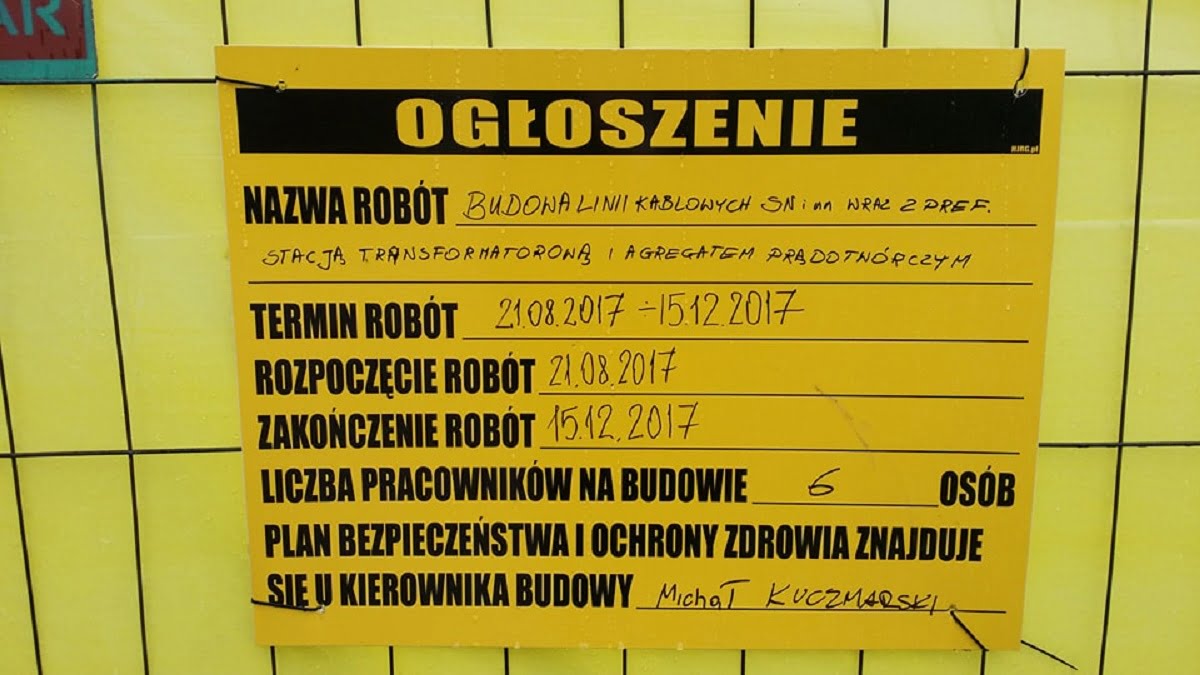 AR
OGŁOSZENIE
NAZWA ROBÓT BUDOWA LINII KABLOWYCH SN i nn WRAZ Z PREF.
STACJĄ TRANSFORMATOROWĄ I AGREGATEM PRĄDOTWÓRCZYM
TERMIN ROBÓT 21.08.2017 ÷ 15.12.2017
ROZPOCZĘCIE ROBÓT 21.08.2017
ZAKOŃCZENIE ROBÓT 15.12.2017
LICZBA PRACOWNIKÓW NA BUDOWIE 6 OSÓB
PLAN BEZPIECZEŃSTWA I OCHRONY ZDROWIA ZNAJDUJE
SIĘ U KIEROWNIKA BUDOWY Michał KUCZMARSKI